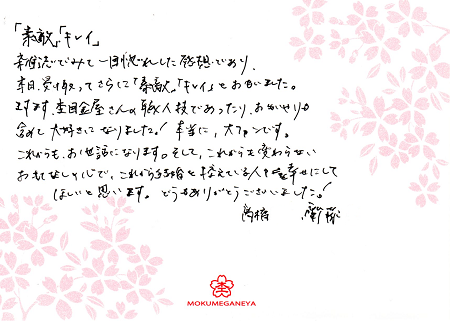 「素敵」「キレイ」
雑誌でみて一目惚れした感想であり、
本日、受け取ってさらに「素敵」、「キレイ」とおもいました。
ますます、杢目金屋さんの職人技であったり、おもいやりも
含めて大好きになりました！本当に、大ファンです。
これからも、お世話になります。そして、これからも変わらない
おもてなしと心で、これから結婚を控えている人を幸せにして
ほしいと思います。どうもありがとうございました！
高橋 齋藤
杢
MOKUMEGANEYA